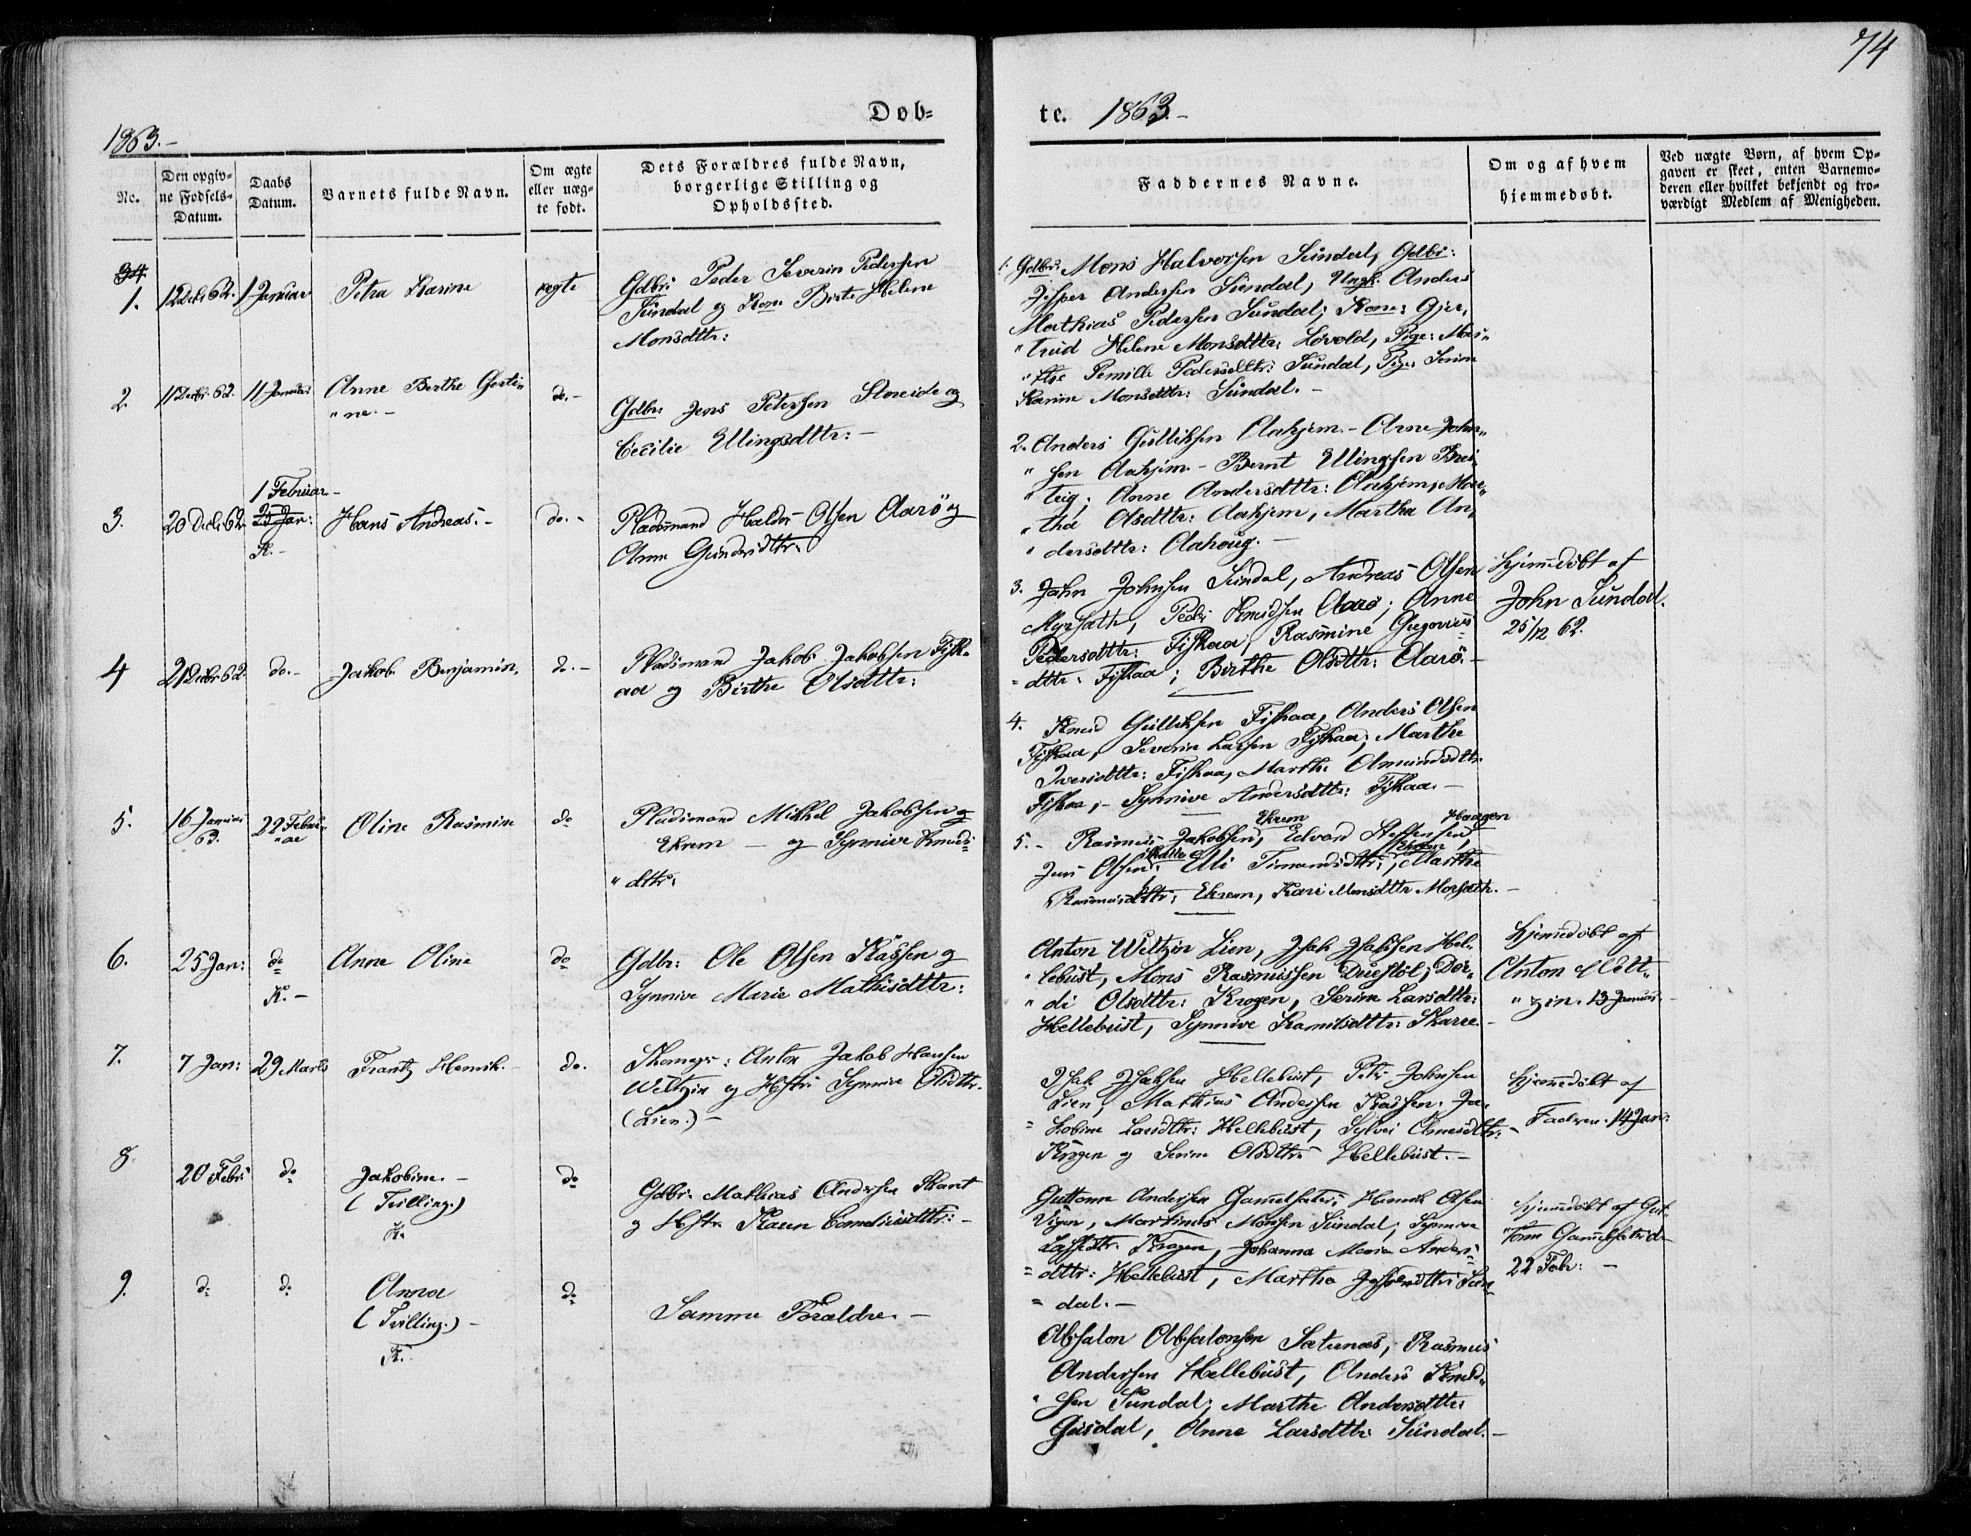 74
Døb=
te. 1863.-
1863.-
No.
Den opgiv-
ne Fødsels-
Datum.
Daabs
Datum.
Barnets fulde Navn.
Om ægte
eller uæg-
te født.
Dets Forældres fulde Navn,
borgerlige Stilling og
Opholdssted.
Faddernes Navne.
Om og af hvem
hjemmedøbt.
Ved uægte Børn, af hvem Op-
gaven er skeet, enten Barnemo-
deren eller hvilket bekjendt og tro-
værdigt Medlem af Menigheden.
34
1. 12 Deb: 62. 1 Januar Petra Karine ægte
Gdbr: Peder Severin Pedersen
Sundal og Kone Birte Helene
Monsdttr:
1. Gdbr: Mons Halvorsen Sundal, Gdbr:
Jesper Andersen Sundal, Ungk: Anders
Mathias Pedersen Sundal; Kone: Gjer,
"trud Helene Monsdttr: Lövold, Pige: Mar-
Pernille Pedersdttr: Sundal, Pige: Serine
Karine Monsdttr: Sundal.-
2. 11 Decbr 62. 11 Januar Anne Birthe Gurti-
"ne.- do.-
Gdbr: Jens Petersen Storeide og
Cecilie Ellingsdttr:-
2. Anders Gulliksen Aahjem.- Arne John-
"sen Aahjem.- Bernt Ellingsen Brei-
"teig; Anne Andersdttr: Aahjem, Mar-
"tha Olsdttr: Aahjem, Martha An-
"dersdttr: Aahoug.-
3. 20 Deb: 62. 1 Februar-
25 Jan:
K.-
Hans Andreas.- do.-
Pladsmand Haldor Olsen Aarö og
Anne Gundersdttr:
3. John Johnsen Sundal, Andreas Olsen
Myrsæth, Peder Knudsen Aarö; Anne
Pedersdttr: Fiskaa, Rasmine Gregorius
=dttr: Fiskaa; Birthe Olsdttr: Aarö.-
Hjemmedöbt af
John Sundal.
25/12 62.
4 21 Decbr 62. do.- Jakob Benjamin. do.-
Pladsmand Jakob Jakobsen Fisk-
aa og Birthe Olsdttr:
4. Knud Gulliksen Fiskaa, Anders Olsen
Fiskaa, Severin Larsen Fiskaa; Marthe
Iversdttr: Fiskaa, Marthe Amundsdttr
Fiskaa,- Synnive Andersdttr: Fiskaa.-
5. 16 Januar
63. 22 Febru-
"ar Oline Rasmine do
Pladsmand Mikkel Jakobsen og
Ekrem - og Synnive Knuds-
"dttr:
Ekrem Haagen
5.- Rasmus Jakobsen, Edvard Steffensen,
Jens Olsen; Elli Timandsdttr:, Marthe
Rasmusdttr: Ekrem, Kari Monsdttr Morsæth.-
6. 25 Jan: do
K.- Anne Oline do
Gdbr: Ole Olsen Kassen og
Synnive Marie Mathisdttr:
Anton Weltzin Lien, Isak Isaksen Hel-
"lebust, Mons Rasmussen Duestöl; Dor-
"di Olsdttr: Krogen, Serine Larsdttr:
Hellebust, Synnive Kamilsdttr: Skarre.-
Hjemmedöbt af
Anton Welt-
"zin. 13 Januar.-
7. 7 Jan: 29 Marts Frantz Henrik.- do.
Skomager: Anton Jakob Hansen
Weltzin og Hstr: Synnive Olsdttr.
(Lien.)-
Isak Isaksen Hellebust, Peter Johnsen
Lien, Mathias Andersen Kassen. Ja-
=kobine Larsdttr: Hellebust, Sylvei Clausdttr:-
Krogen og Serine Olsdttr: Hellebust.-
Hjemmedöbt af
Faderen. 14 Jan:
8. 20 Febr: do Jakobine.-
(Tvilling.)
K. do
Gdbr: Mathias Andersen Skaret
og Hstr: Karen Corneliusdttr:-
Guttorm Andersen Gammelsæter; Henrik Olsen
Vigen, Martinus Monsen Sundal; Synnive
Krogen, Johanna Maria Anders-
=dttr: Hellebust, Martha Jespersdttr: Sun-
=dal.-
Hjemmedöbt af Gut-
"torm Gammelsæter d-
22 Febr:-
9. do do Anna
(Tvilling.)-
K. do
Samme Forældre.-
Absalon Absalonsen Sætrenes, Rasmus
Andersen Hellebust, Anders Knud-
"sen Sundal; Marthe Andersdttr:
Gusdal, Anne Larsdttr: Sundal.-